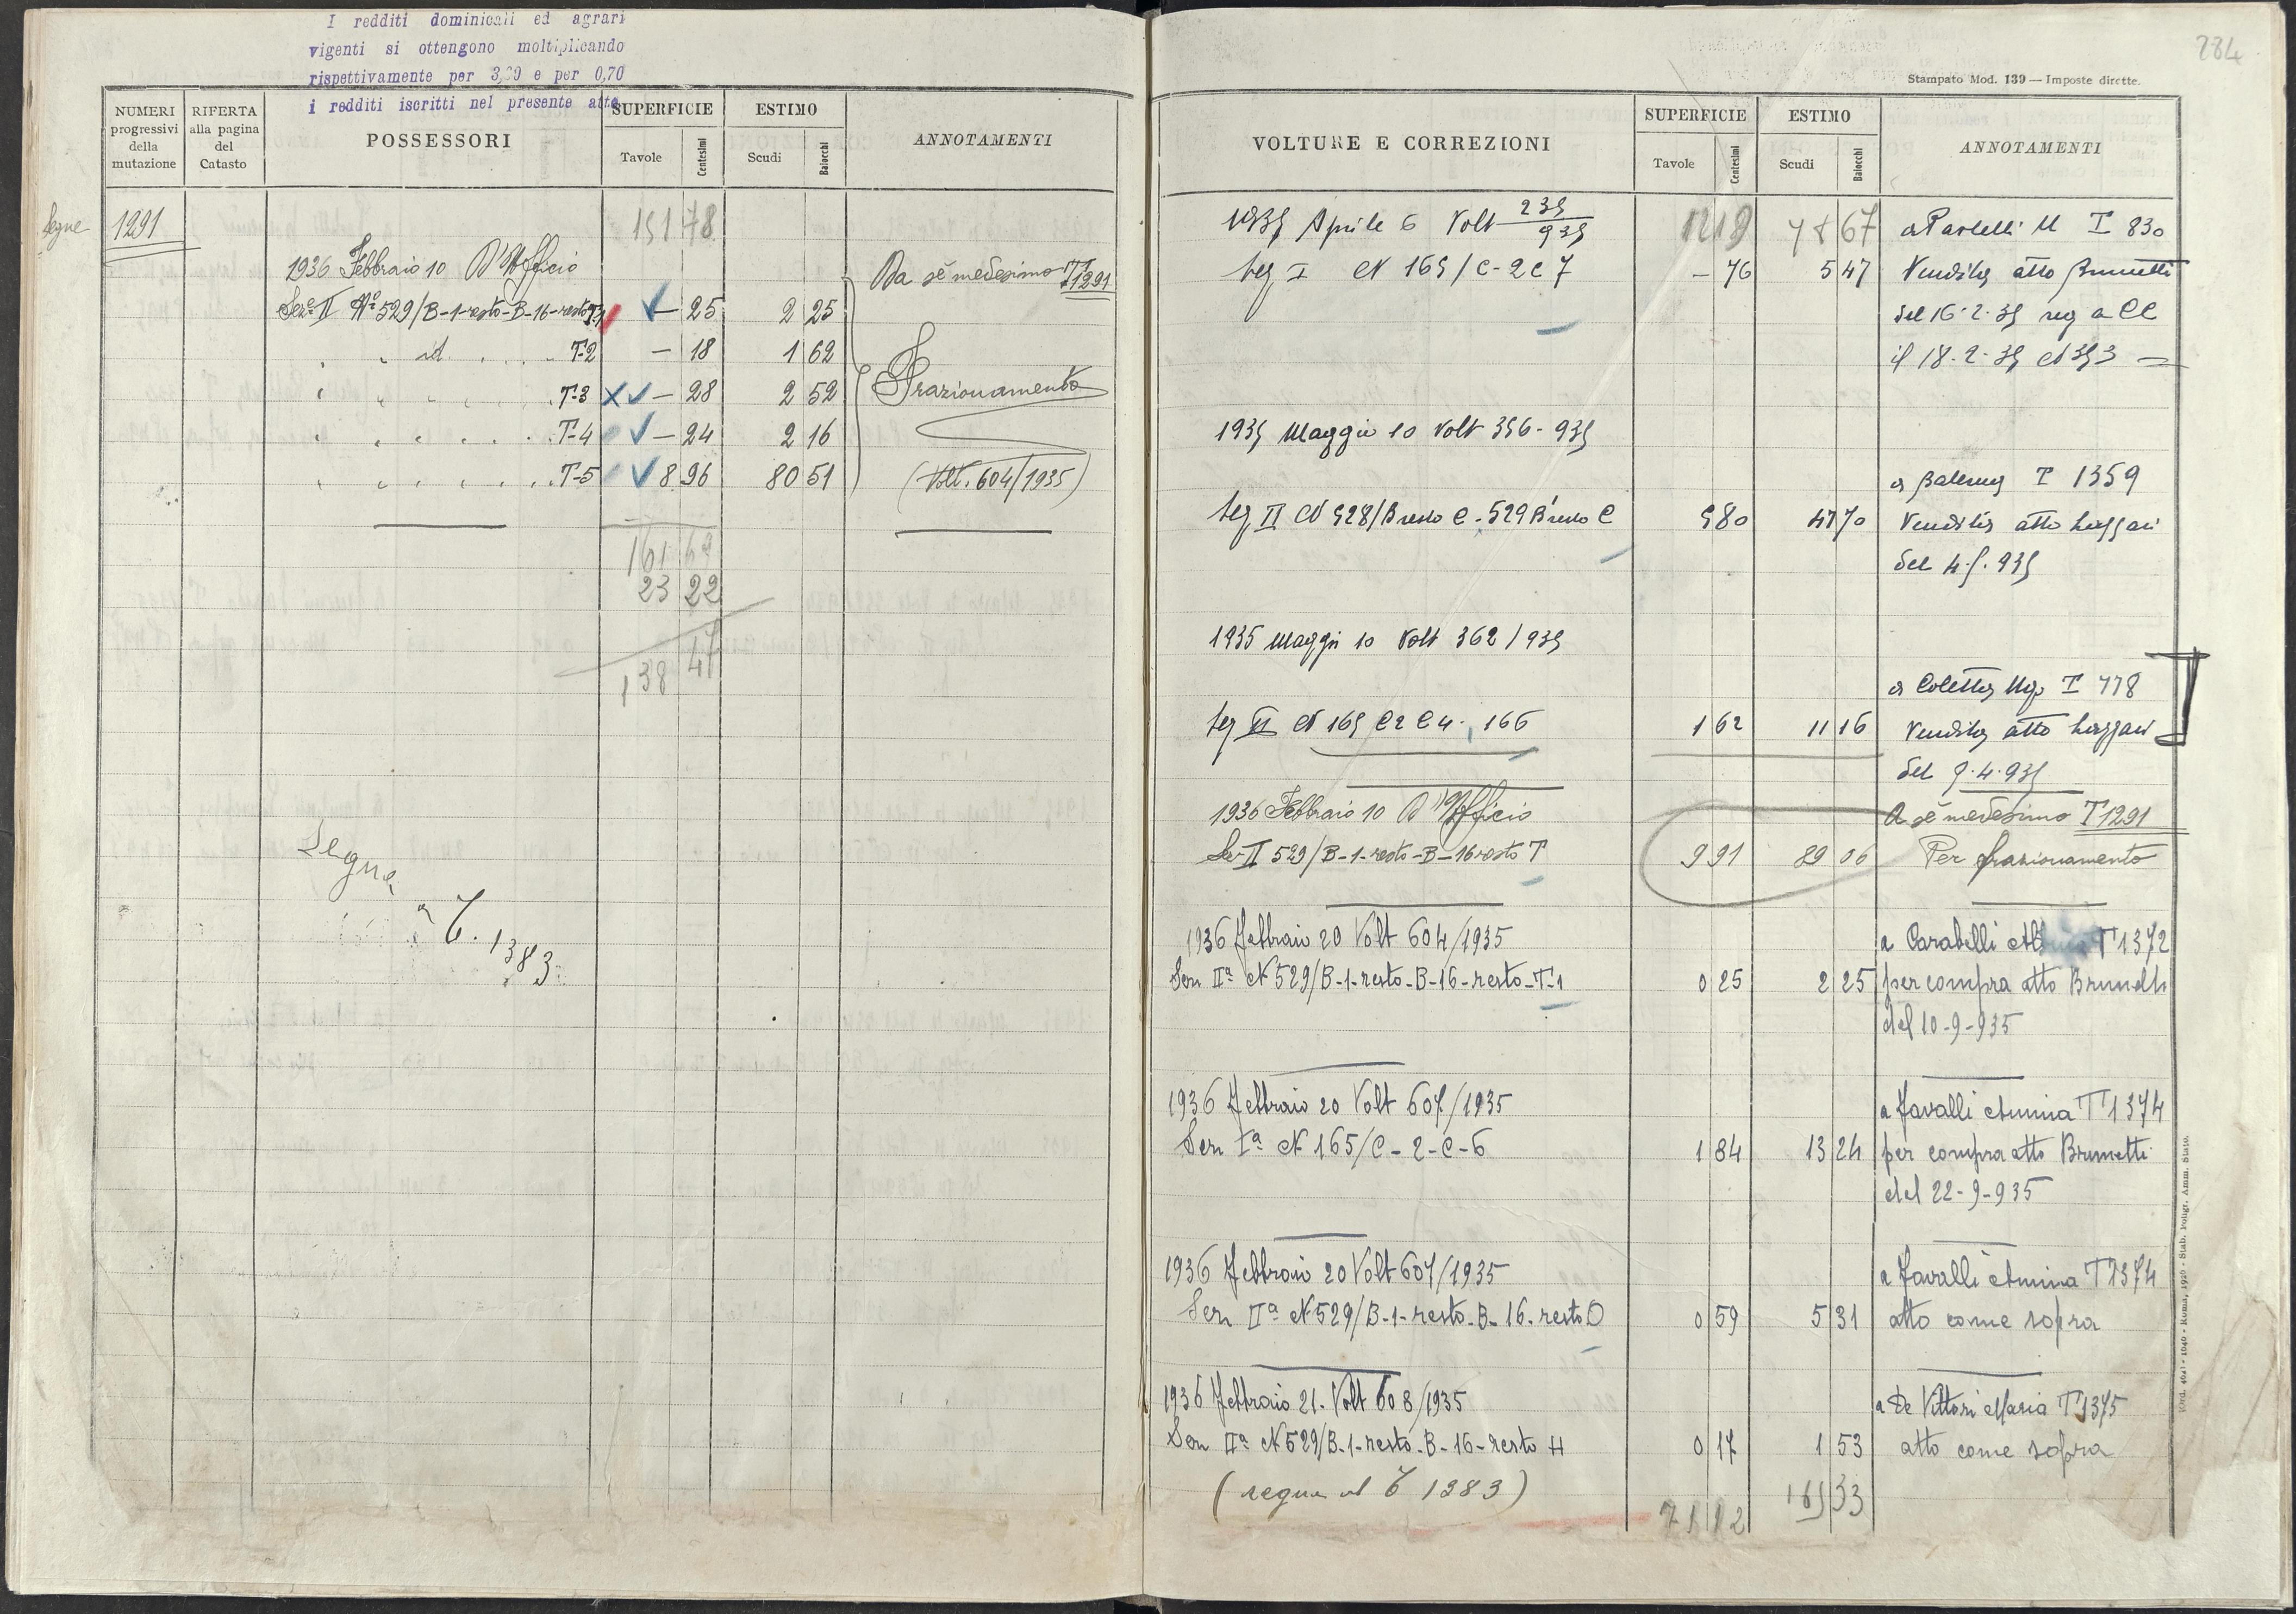 I redditi dominicali ed agrari
vigenti si ottengono moltiplicando
rispettivamente per 3,20 e per 0,70
i redditi iscritti nel presente atto
NUMERI progressivi della mutazione
RIFERTA alla pagina del Catasto
POSSESSORI
SUPERFICIE
Tavole Centesimi
ESTIMO
Scudi Baiocchi
ANNOTAMENTI
Segue 1291 151 78
1936 Febbraio 10 D'Ufficio Da sè medesimo T1291
Sez. II Nº 529/B-1-resto-B-16-resto T1 — 25 2 25
" " id. T-2 — 18 1 62
" " T-3 — 28 2 52 Frazionamento
" " T-4 — 24 2 16
" " T-5 8 96 80 51 (Volt. 604/1935)
161 69
23 22
138 47
Segue
a T. 1383
284
Stampato Mod. 139 — Imposte dirette.
VOLTURE E CORREZIONI
SUPERFICIE
Tavole Centesimi
ESTIMO
Scudi Baiocchi
ANNOTAMENTI
1935 Aprile 6 Volt 235/935 12 18 78 67 T 830
Sez I N 165/C-2 C 7 — 76 5 47 Vendita atto Brunetti
del 16-2-35 reg a
il 18-2-35 N 353
1935 Maggio 10 Volt 356-935
T 1359
Sez II N 528/B resto C - 529 B resto C 5 80 47 70 Vendita atto
del 4.5.935
1935 Maggio 10 Volt 362/935
a Coletta Ugo T 778
Sez II N 165 C2 C4 - 166 1 62 11 16 Vendita atto
del 9.4.935
1936 Febbraio 10 D'Ufficio A sè medesimo T1291
Sez II 529/B-1-resto-B-16 resto T 9 91 89 06 Per frazionamento
1936 Febbraio 20 Volt 604/1935 a Carabelli T 1372
Sez IIª N 529/B-1-resto-B-16-resto-T-1 0 25 2 25 per compra atto Brunetti
del 10-9-935
1936 Febbraio 20 Volt 607/1935 a Favalli Annina T 1374
Sez Iª N 165/C-2-C-6 1 84 13 24 per compra atto Brunetti
del 22-9-935
1936 Febbraio 20 Volt 607/1935 a Favalli Annina T 1374
Sez IIª N 529/B-1-resto-B-16-resto O 0 59 5 31 atto come sopra
1936 Febbraio 21. Volt 608/1935 a De Vittori Maria T 1375
Sez IIª N 529/B-1-resto-B-16-resto H 0 17 1 53 atto come sopra
(segue al T 1383) 165 33